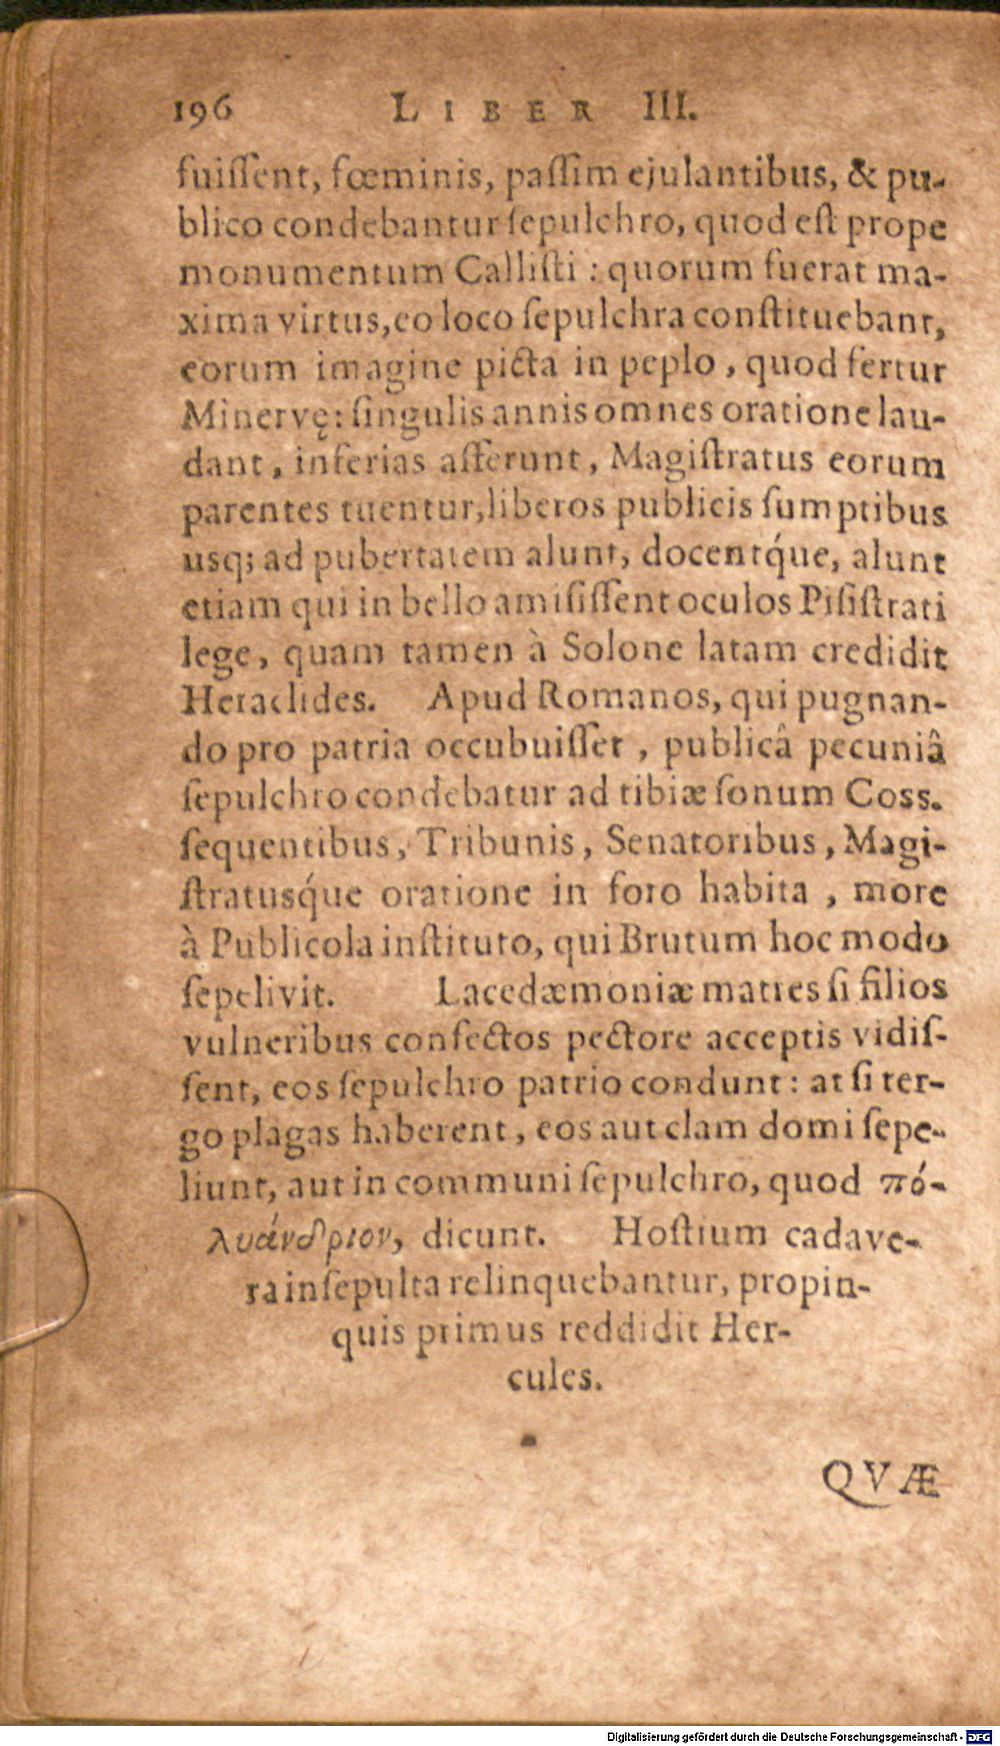 196 LIBER III.
fuiſſent, fœminis, paſſim ejulantibus, & pu-
blico condebantur ſepulchro, quod eſt prope
monumentum Calliſti : quorum fuerat ma-
xima virtus, eo loco ſepulchra conſtituebant,
eorum imagine picta in peplo, quod fertur
Minervę: ſingulis annis omnes oratione lau-
dant, inferias afferunt, Magiſtratus eorum
parentes tuentur, liberos publicis ſumptibus
usq; ad pubertatem alunt, docentq́ue, alunt
etiam qui in bello amiſiſſent oculos Piſiſtrati
lege, quam tamen à Solone latam credidit
Heraclides. Apud Romanos, qui pugnan-
do pro patria occubuiſſet, publicâ pecuniâ
ſepulchro condebatur ad tibiæ ſonum Coss.
ſequentibus, Tribunis, Senatoribus, Magi-
ſtratusq́ue oratione in foro habita, more
à Publicola inſtituto, qui Brutum hoc modo
ſepelivit. Lacedæmoniæ matres ſi filios
vulneribus confectos pectore acceptis vidiſ-
ſent, eos ſepulchro patrio condunt : at ſi ter-
go plagas haberent, eos aut clam domi ſepe-
liunt, aut in communi ſepulchro, quod πό-
λυάνδριον, dicunt. Hoſtium cadave-
ra inſepulta relinquebantur, propin-
quis primus reddidit Her-
cules.
QVÆ
Digitalisierung gefördert durch die Deutsche Forschungsgemeinschaft - DFG